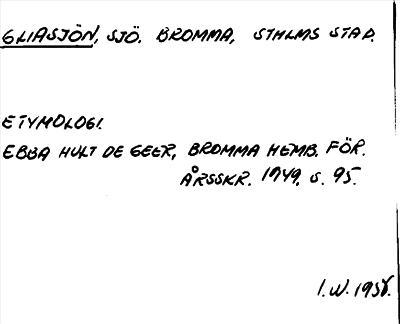 GLIASJÖN, SJÖ. BROMMA, STHLMS STAD.
ETYMOLOGI.
EBBA HULT DE GEER, BROMMA HEMB. FÖR.
ÅRSSKR. 1949, S. 95.
I.W. 1958.